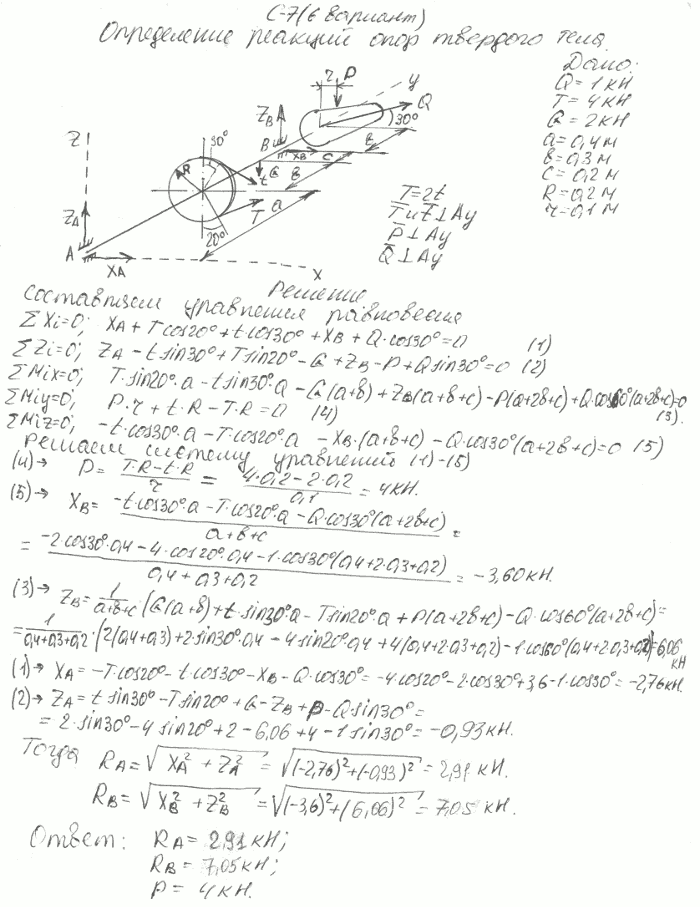 С-7 (6 вариант)
Определение реакций опор твердого тела.
Дано:
Q = 1 кН
T = 4 кН
G = 2 кН
a = 0,4 м
b = 0,3 м
c = 0,2 м
R = 0,2 м
r = 0,1 м
T = 2t
T и t ⊥ Ay
P ⊥ Ay
Q ⊥ Ay
Z
ZA
A
XA
X
30°
R
t
T
20°
a
G
b
ZB
B
XB
c
b
r
P
y
Q
30°
Решение
Составляем уравнения равновесия
ΣXi=0; XA + T cos20° + t·cos30° + XB + Q·cos30° = 0 (1)
ΣZi=0; ZA - t·sin30° + T sin20° - G + ZB - P + Q sin30° = 0 (2)
ΣMix=0; T·sin20°·a - t sin30°·a - G(a+b) + ZB(a+b+c) - P(a+2b+c) + Q·cos60°(a+2b+c)=0 (3).
ΣMiy=0; P·r + t·R - T·R = 0 (4)
ΣMiz=0; -t·cos30°·a - T·cos20°·a - XB·(a+b+c) - Q·cos30°(a+2b+c)=0 (5)
Решаем систему уравнений (1)-(5)
(4)→ P = (T·R - t·R)/r = (4·0,2 - 2·0,2)/0,1 = 4 кН.
(5)→ XB = (-t·cos30°·a - T·cos20°·a - Q·cos30°(a+2b+c))/(a+b+c) =
= (-2·cos30°·0,4 - 4·cos20°·0,4 - 1·cos30°(0,4+2·0,3+0,2))/(0,4+0,3+0,2) = -3,60 кН.
(3)→ ZB = 1/(a+b+c)·(G(a+b) + t·sin30°·a - T sin20°·a + P(a+2b+c) - Q·cos60°(a+2b+c)) =
= 1/(0,4+0,3+0,2)·(2(0,4+0,3)+2·sin30°·0,4 - 4 sin20°·0,4 + 4(0,4+2·0,3+0,2) - 1·cos60°(0,4+2·0,3+0,2)) = 6,06 кН
(1)→ XA = -T·cos20° - t·cos30° - XB - Q·cos30° = -4·cos20° - 2·cos30° + 3,6 - 1·cos30° = -2,76 кН.
(2)→ ZA = t sin30° - T sin20° + G - ZB + P - Q sin30° =
= 2·sin30° - 4 sin20° + 2 - 6,06 + 4 - 1 sin30° = -0,93 кН.
Тогда RA = √(XA² + ZA²) = √((-2,76)² + (-0,93)²) = 2,91 кН.
RB = √(XB² + ZB²) = √((-3,6)² + (6,06)²) = 7,05 кН.
Ответ: RA = 2,91 кН;
RB = 7,05 кН;
P = 4 кН.